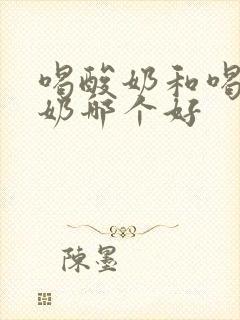 喝酸奶和喝
奶哪个好
陈墨